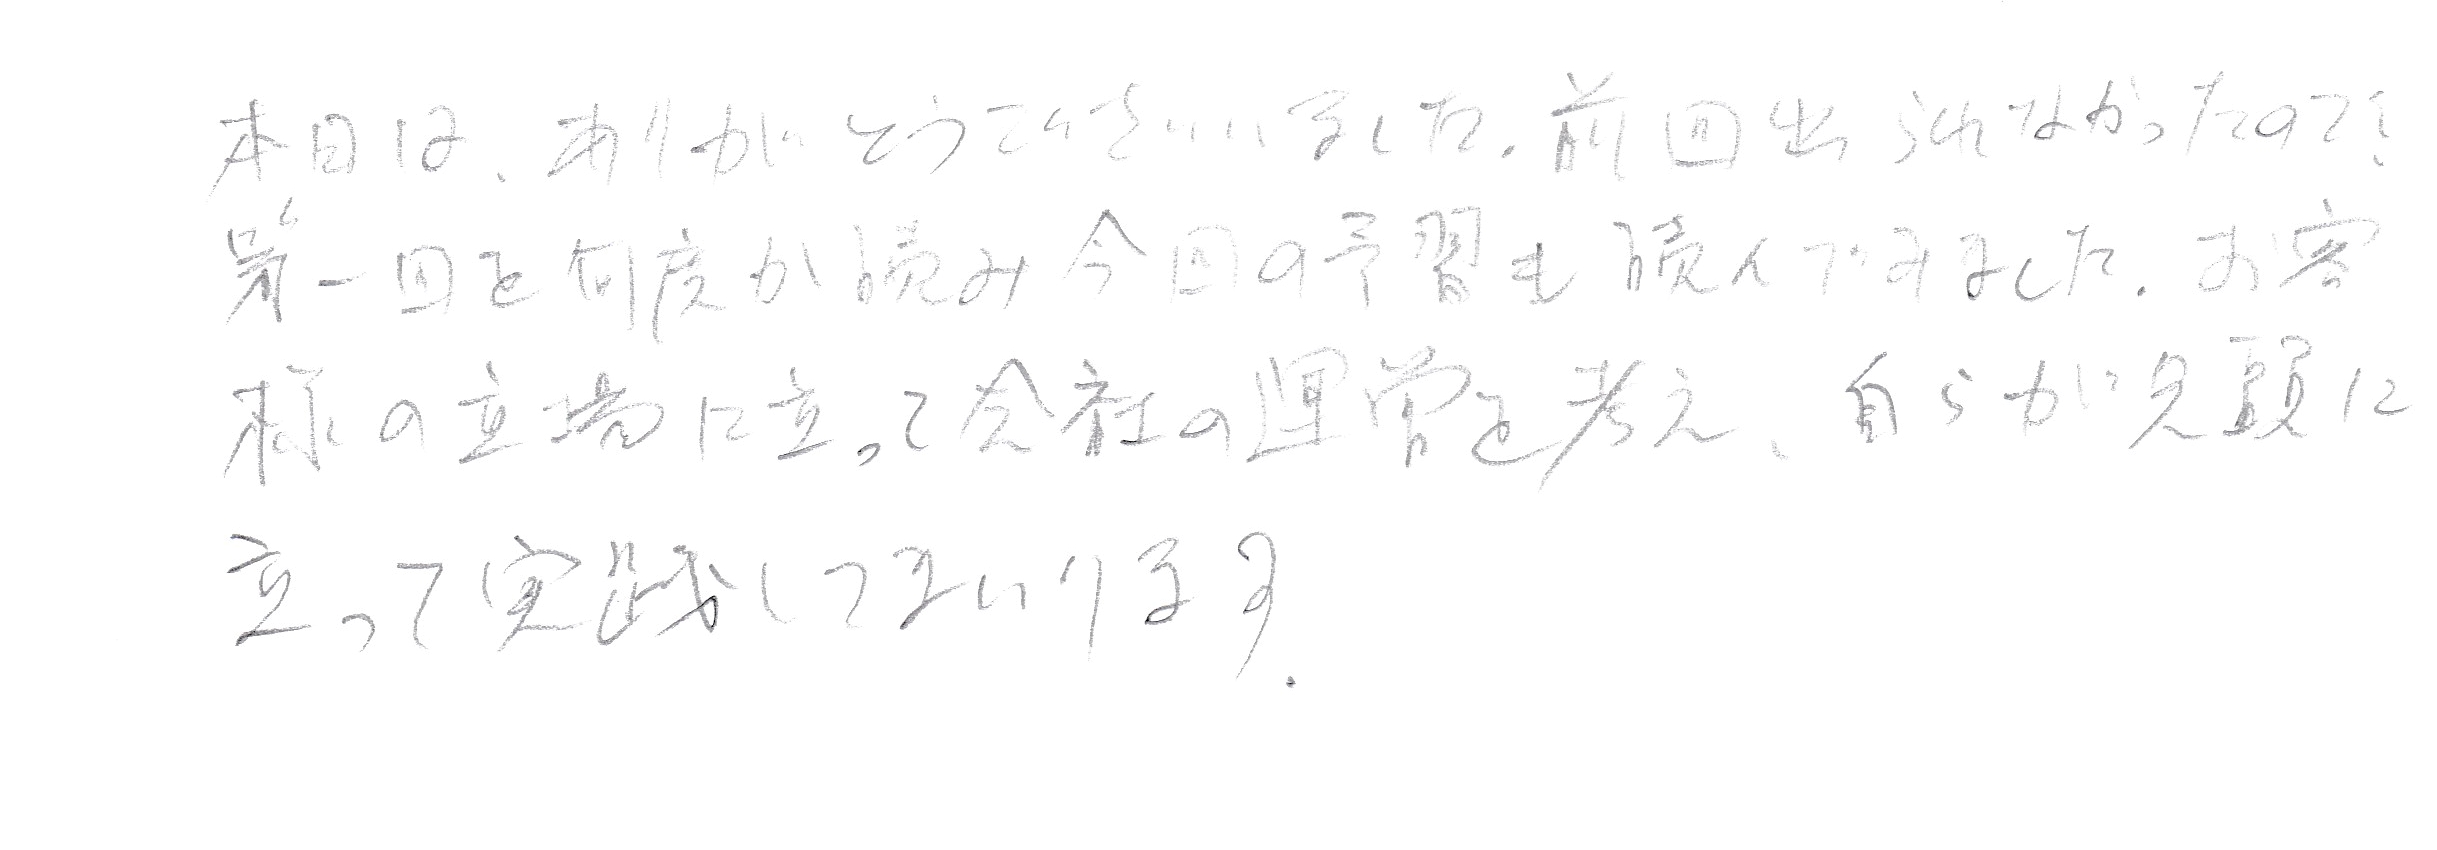 本日は、ありがとうございました。前回出られなかったので
第一回を何度か読み今回の予習も読んできました。お客
様の立場に立って会社の運営を考え、自らが先頭に
立って実践してまいります。